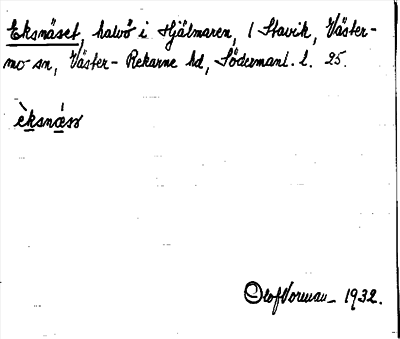 Eksnäset, halvö i Hjälmaren, l Stavik, Väster-
mo sn, Väster-Rekarne hd, Södermanl. l. 25.
èksnǽsə
Olof Vorman 1932.